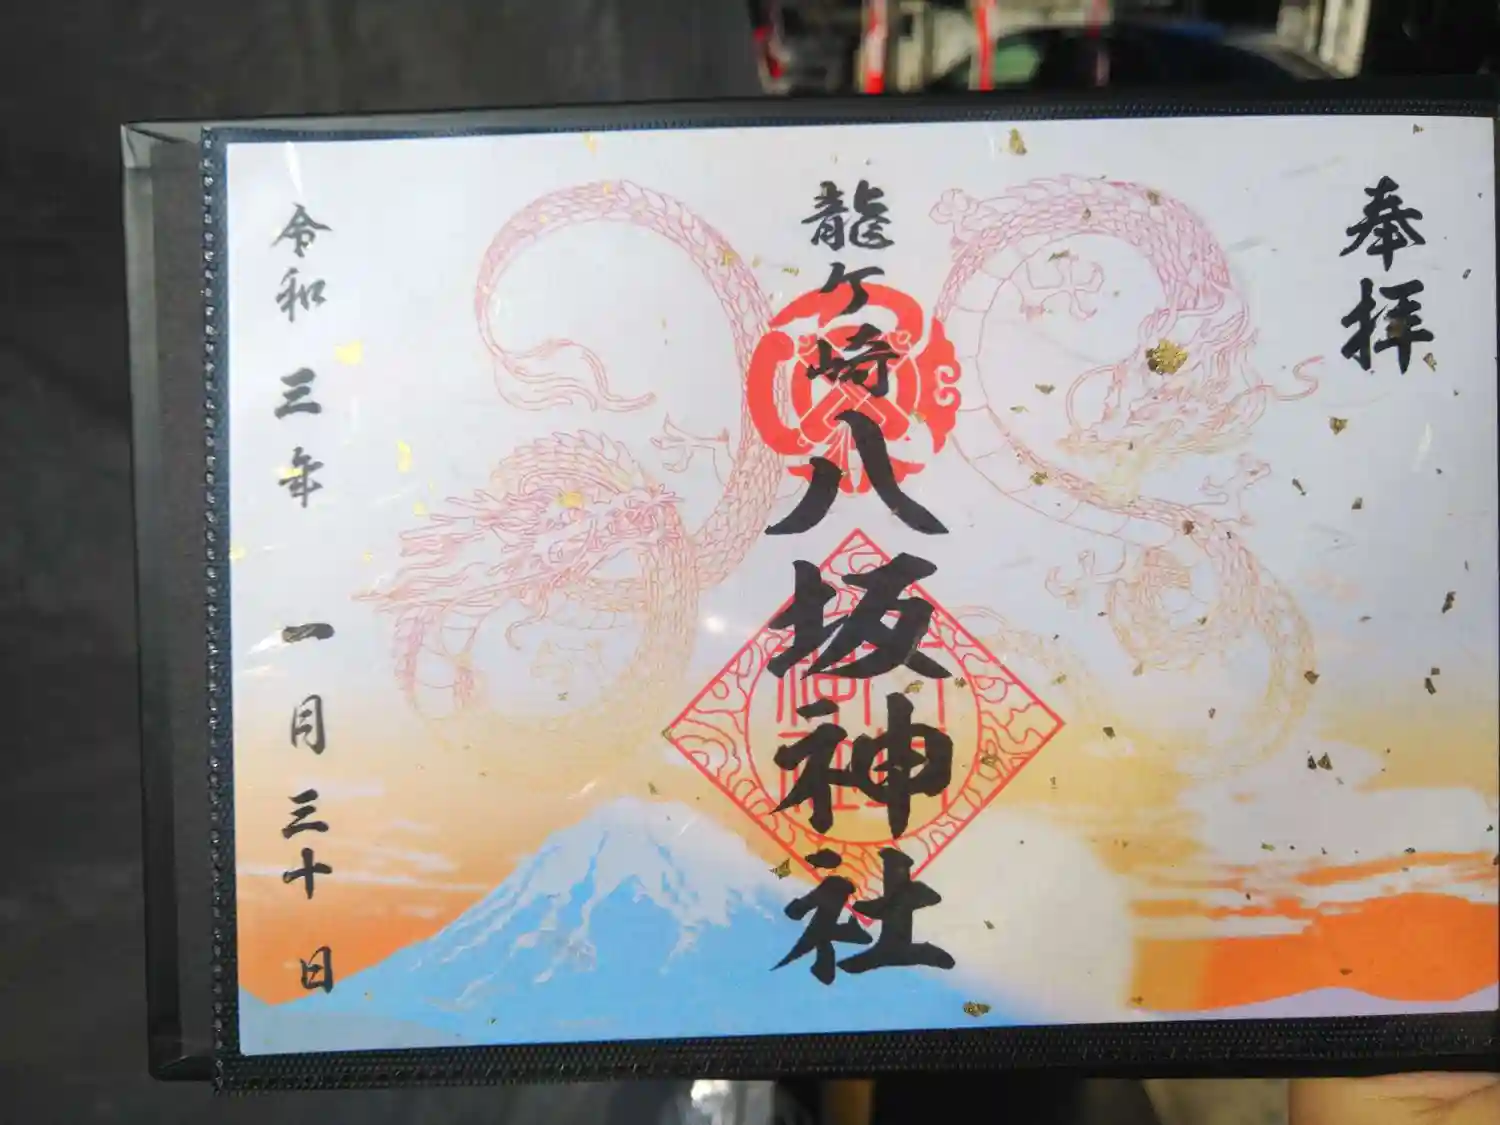 奉拝
龍ケ崎八坂神社
令和三年一月三十日